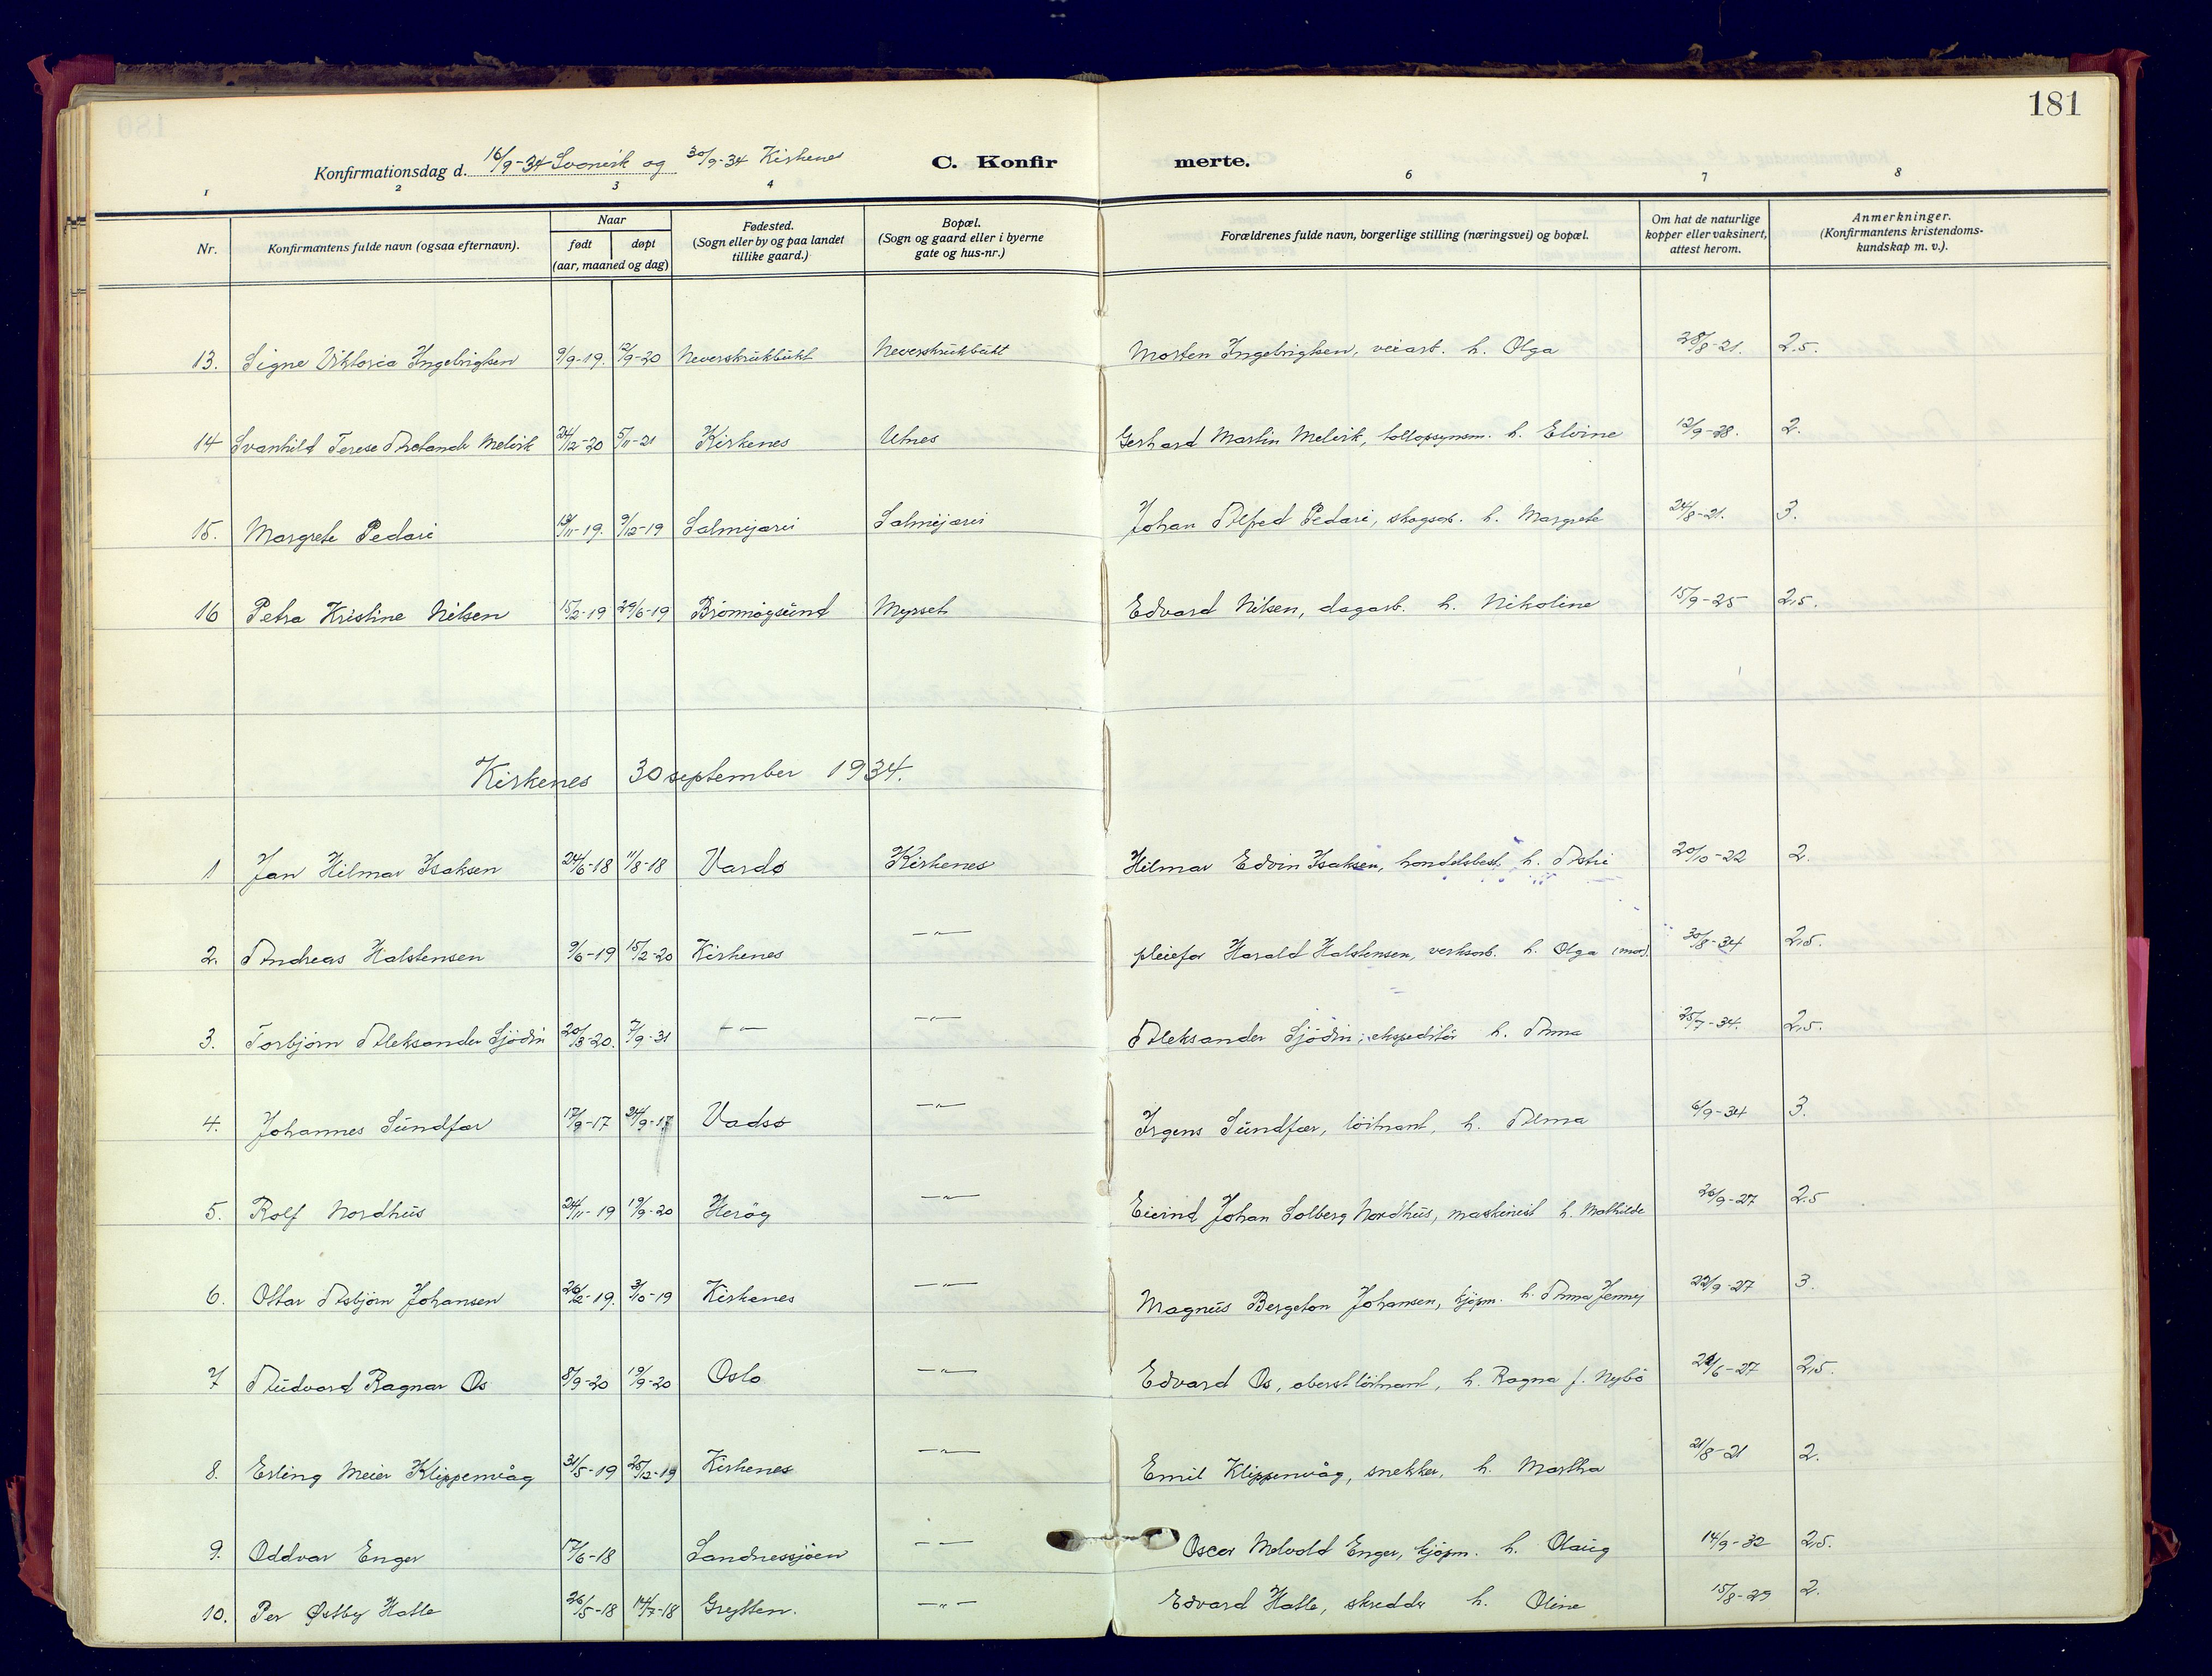 181
Konfirmationsdag d. 16/9-34 Svanvik og 30/9-34 Kirkenes C. Konfir merte.
1 2 3 4 6 7 8
Nr. Konfirmantens fulde navn (ogsaa efternavn). Naar født døpt (aar, maaned og dag) Fødested. (Sogn eller by og paa landet tillike gaard.) Bopæl. (Sogn og gaard eller i byerne gate og hus-nr.) Forældrenes fulde navn, borgerlige stilling (næringsvei) og bopæl. Om hat de naturlige kopper eller vaksinert, attest herom. Anmerkninger. (Konfirmantens kristendoms-kundskap m. v.).
13. Signe Viktoria Ingebrigtsen 9/9-19. 12/9-20 Neverskrukbukt Neverskrukbukt Morten Ingebrigtsen, veiarb. h. Olga 28/8-21. 2.5.
14 Svanhild Terese Melvik 24/12-20 5/11-21 Kirkenes Utnes Gerhard Martin Melvik, tollopsynsm. h. Elvine 12/9-28. 2.
15. Margrete Pedari /11-19. 9/12-19 Salmijarvi Salmijarvi Johan Alfred Pedari, skogsarb. h. Margrete 24/8-21. 3.
16 Petra Kristine Nilsen 15/2-19 29/6-19 Brönnöysund Myrset Edvard Nilsen, dagarb. h. Nikoline 15/9-25 2,5.
Kirkenes 30 september 1934.
1 Jan Hilmar Isaksen 24/6-18 11/8-18 Vardø Kirkenes Hilmar Edvin Isaksen, handelsbest. h. Astri 20/10-22 2.
2. Andreas Halstensen 9/6-19 15/2-20 Kirkenes —"— pleiefar Harald Halstensen, verksarb. h. Olga (mor). 30/8-34 2,5.
3. Torbjörn Aleksander Sjödin 20/3-20. 7/9-31 —"— —"— Aleksander Sjödin, ekspeditör h. Anna 25/7-34. 2,5.
4. Johannes Sundfær 17/9-17 24/9-17 Vadsø —"— Irgens Sundfær, löitnant, h. Alma 6/9-34 3.
5. Rolf Nordhus 24/11-19 19/9-20 Heröy —"— Eivind Johan Solberg Nordhus, maskinist h. Mathilde 26/9-27 2.5
6. Ottar Asbjörn Johansen 26/2-19. 3/10-19 Kirkenes —"— Magnus Bergeton Johansen, kjöpm. h. Anna Jenny 22/9-27 3.
7 Audvard Ragnar Os 8/9-20 19/9-20 Oslo —"— Edvard Os, oberstlöitnant, h. Ragna f. Nybö 22/6-27 2,5.
8. Erling Meier Klippenvåg 31/5-19 25/12-19 Kirkenes —"— Emil Klippenvåg, snekker, h. Martha 21/8-21 2.
9. Oddvar Enger 17/6-18 Sandnessjöen — — Oscar Melvold Enger, kjöpm. h. Olaug 14/9-32 2,5.
10. Per Østby Hatle 26/5-18 14/7-18 Grytten. —"— Edvard Hatle, skredder h. Oline 15/8-29 2.